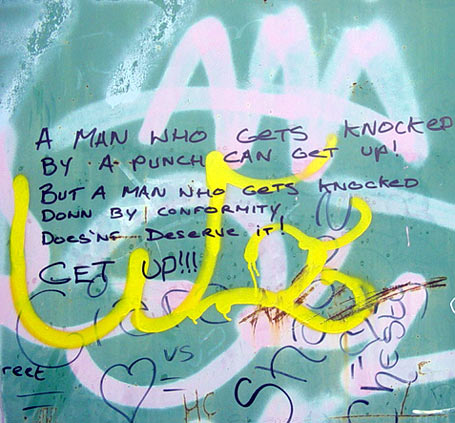 A MAN WHO GETS KNOCKED
BY A PUNCH CAN GET UP!
BUT A MAN WHO GETS KNOCKED
DOWN BY CONFORMITY,
DOES'NG DESERVE IT!
GET UP!!!
VS
reet
MC